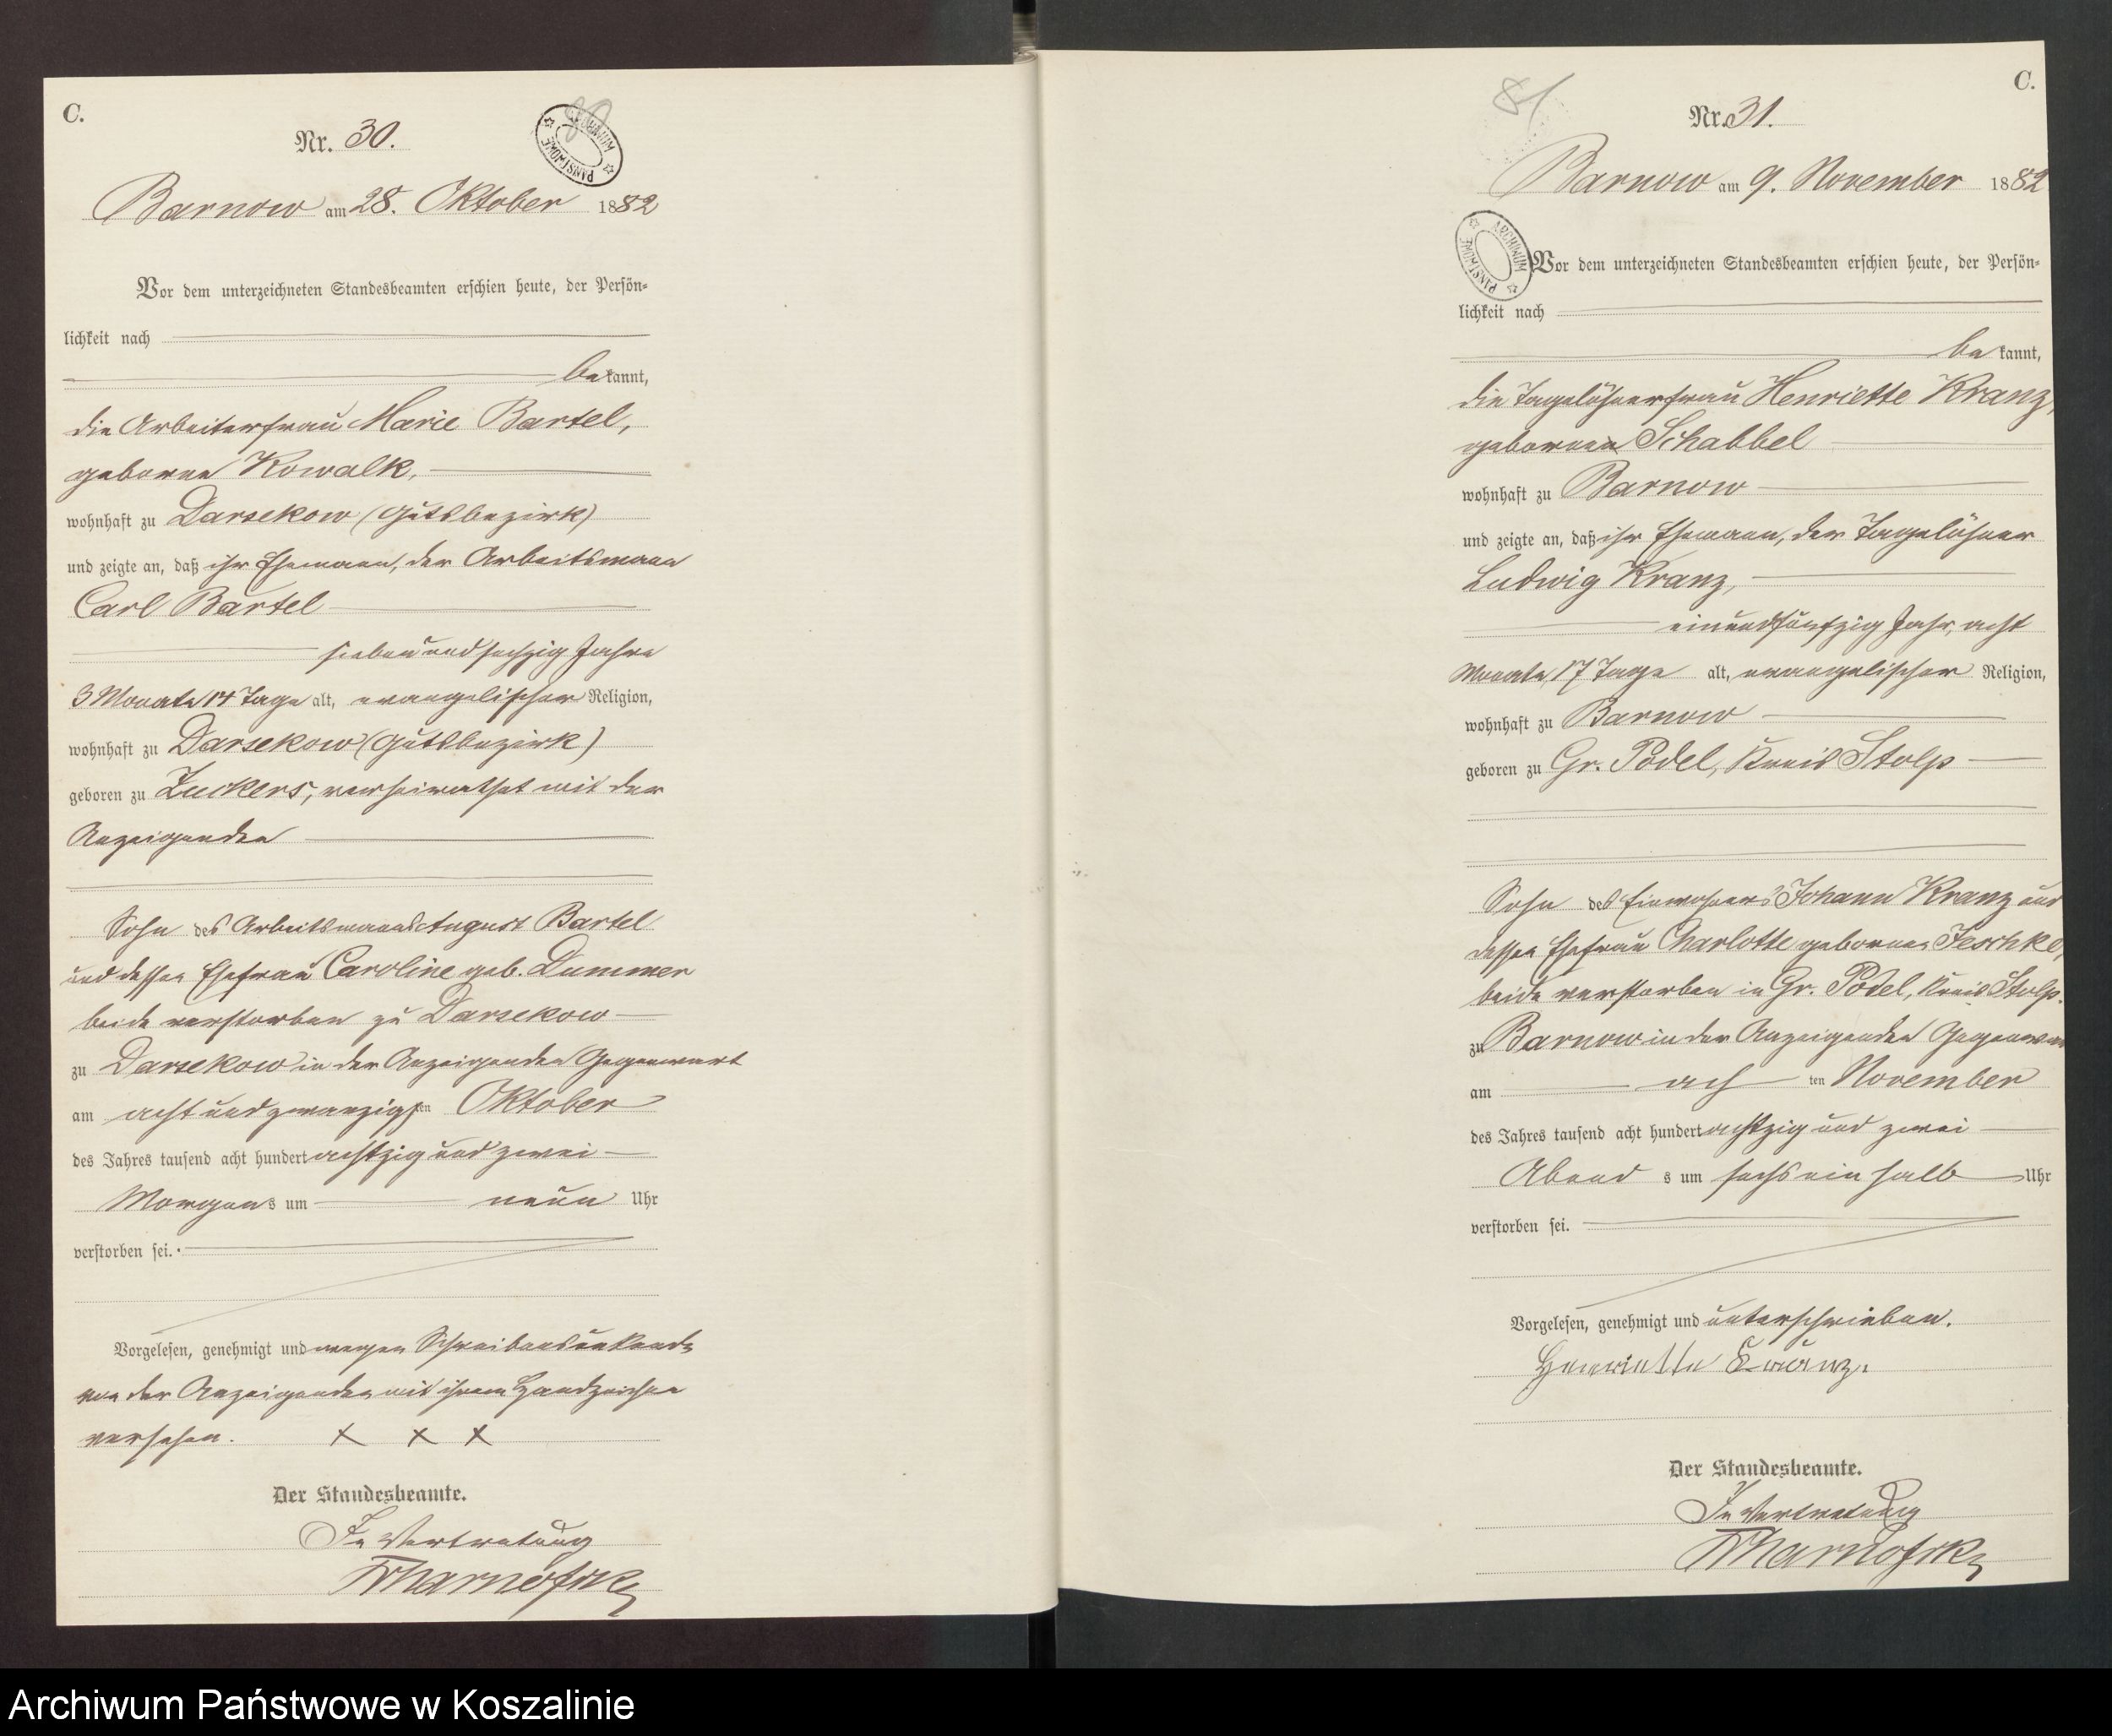 C.
Nr. 30.
80
ARCHIWUM PAŃSTWOWE
Barnow am 28. Oktober 1882
Vor dem unterzeichneten Standesbeamten erschien heute, der Persön-
lichkeit nach
bekannt,
die Arbeiterfrau Marie Bartel,
geborne Kowalk,
wohnhaft zu Darsekow (Gutsbezirk)
und zeigte an, daß ihr Ehemann, der Arbeitsmann
Carl Bartel
siebenundsechzig Jahre
3 Monate 14 Tage alt, evangelischer Religion,
wohnhaft zu Darsekow (Gutsbezirk)
geboren zu Zuckers, verheirathet mit der
Anzeigenden
Sohn des Arbeitsmanns August Bartel
und dessen Ehefrau Caroline geb. Dummer
beide verstorben zu Darsekow
zu Darsekow in der Anzeigenden Gegenwart
am acht und zwanzigsten Oktober
des Jahres tausend acht hundert achtzig und zwei
Morgens um neun Uhr
verstorben sei.
Vorgelesen, genehmigt und wegen Schreibensunkunde
von der Anzeigenden mit ihrem Handzeichen
versehen. X X X
Der Standesbeamte.
In Vertretung
C.
81
Nr. 31.
Barnow am 9. November 1882
ARCHIWUM PAŃSTWOWE
Vor dem unterzeichneten Standesbeamten erschien heute, der Persön-
lichkeit nach
bekannt,
die Tagelöhnerfrau Henriette Kranz,
geborene Schabbel
wohnhaft zu Barnow
und zeigte an, daß ihr Ehemann, der Tagelöhner
Ludwig Kranz,
einundfünfzig Jahr, acht
Monate, 17 Tage alt, evangelischer Religion,
wohnhaft zu Barnow
geboren zu Gr. Podel, Kreis Stolp
Sohn des Einwohners Johann Kranz und
dessen Ehefrau Charlotte geborene Jeschke,
beide verstorben in Gr. Podel, Kreis Stolp.
zu Barnow in der Anzeigenden Gegenwart
am achten November
des Jahres tausend acht hundert achtzig und zwei
Abends um sechseinhalb Uhr
verstorben sei.
Vorgelesen, genehmigt und unterschrieben.
Henriette Kranz.
Der Standesbeamte.
In Vertretung
Archiwum Państwowe w Koszalinie